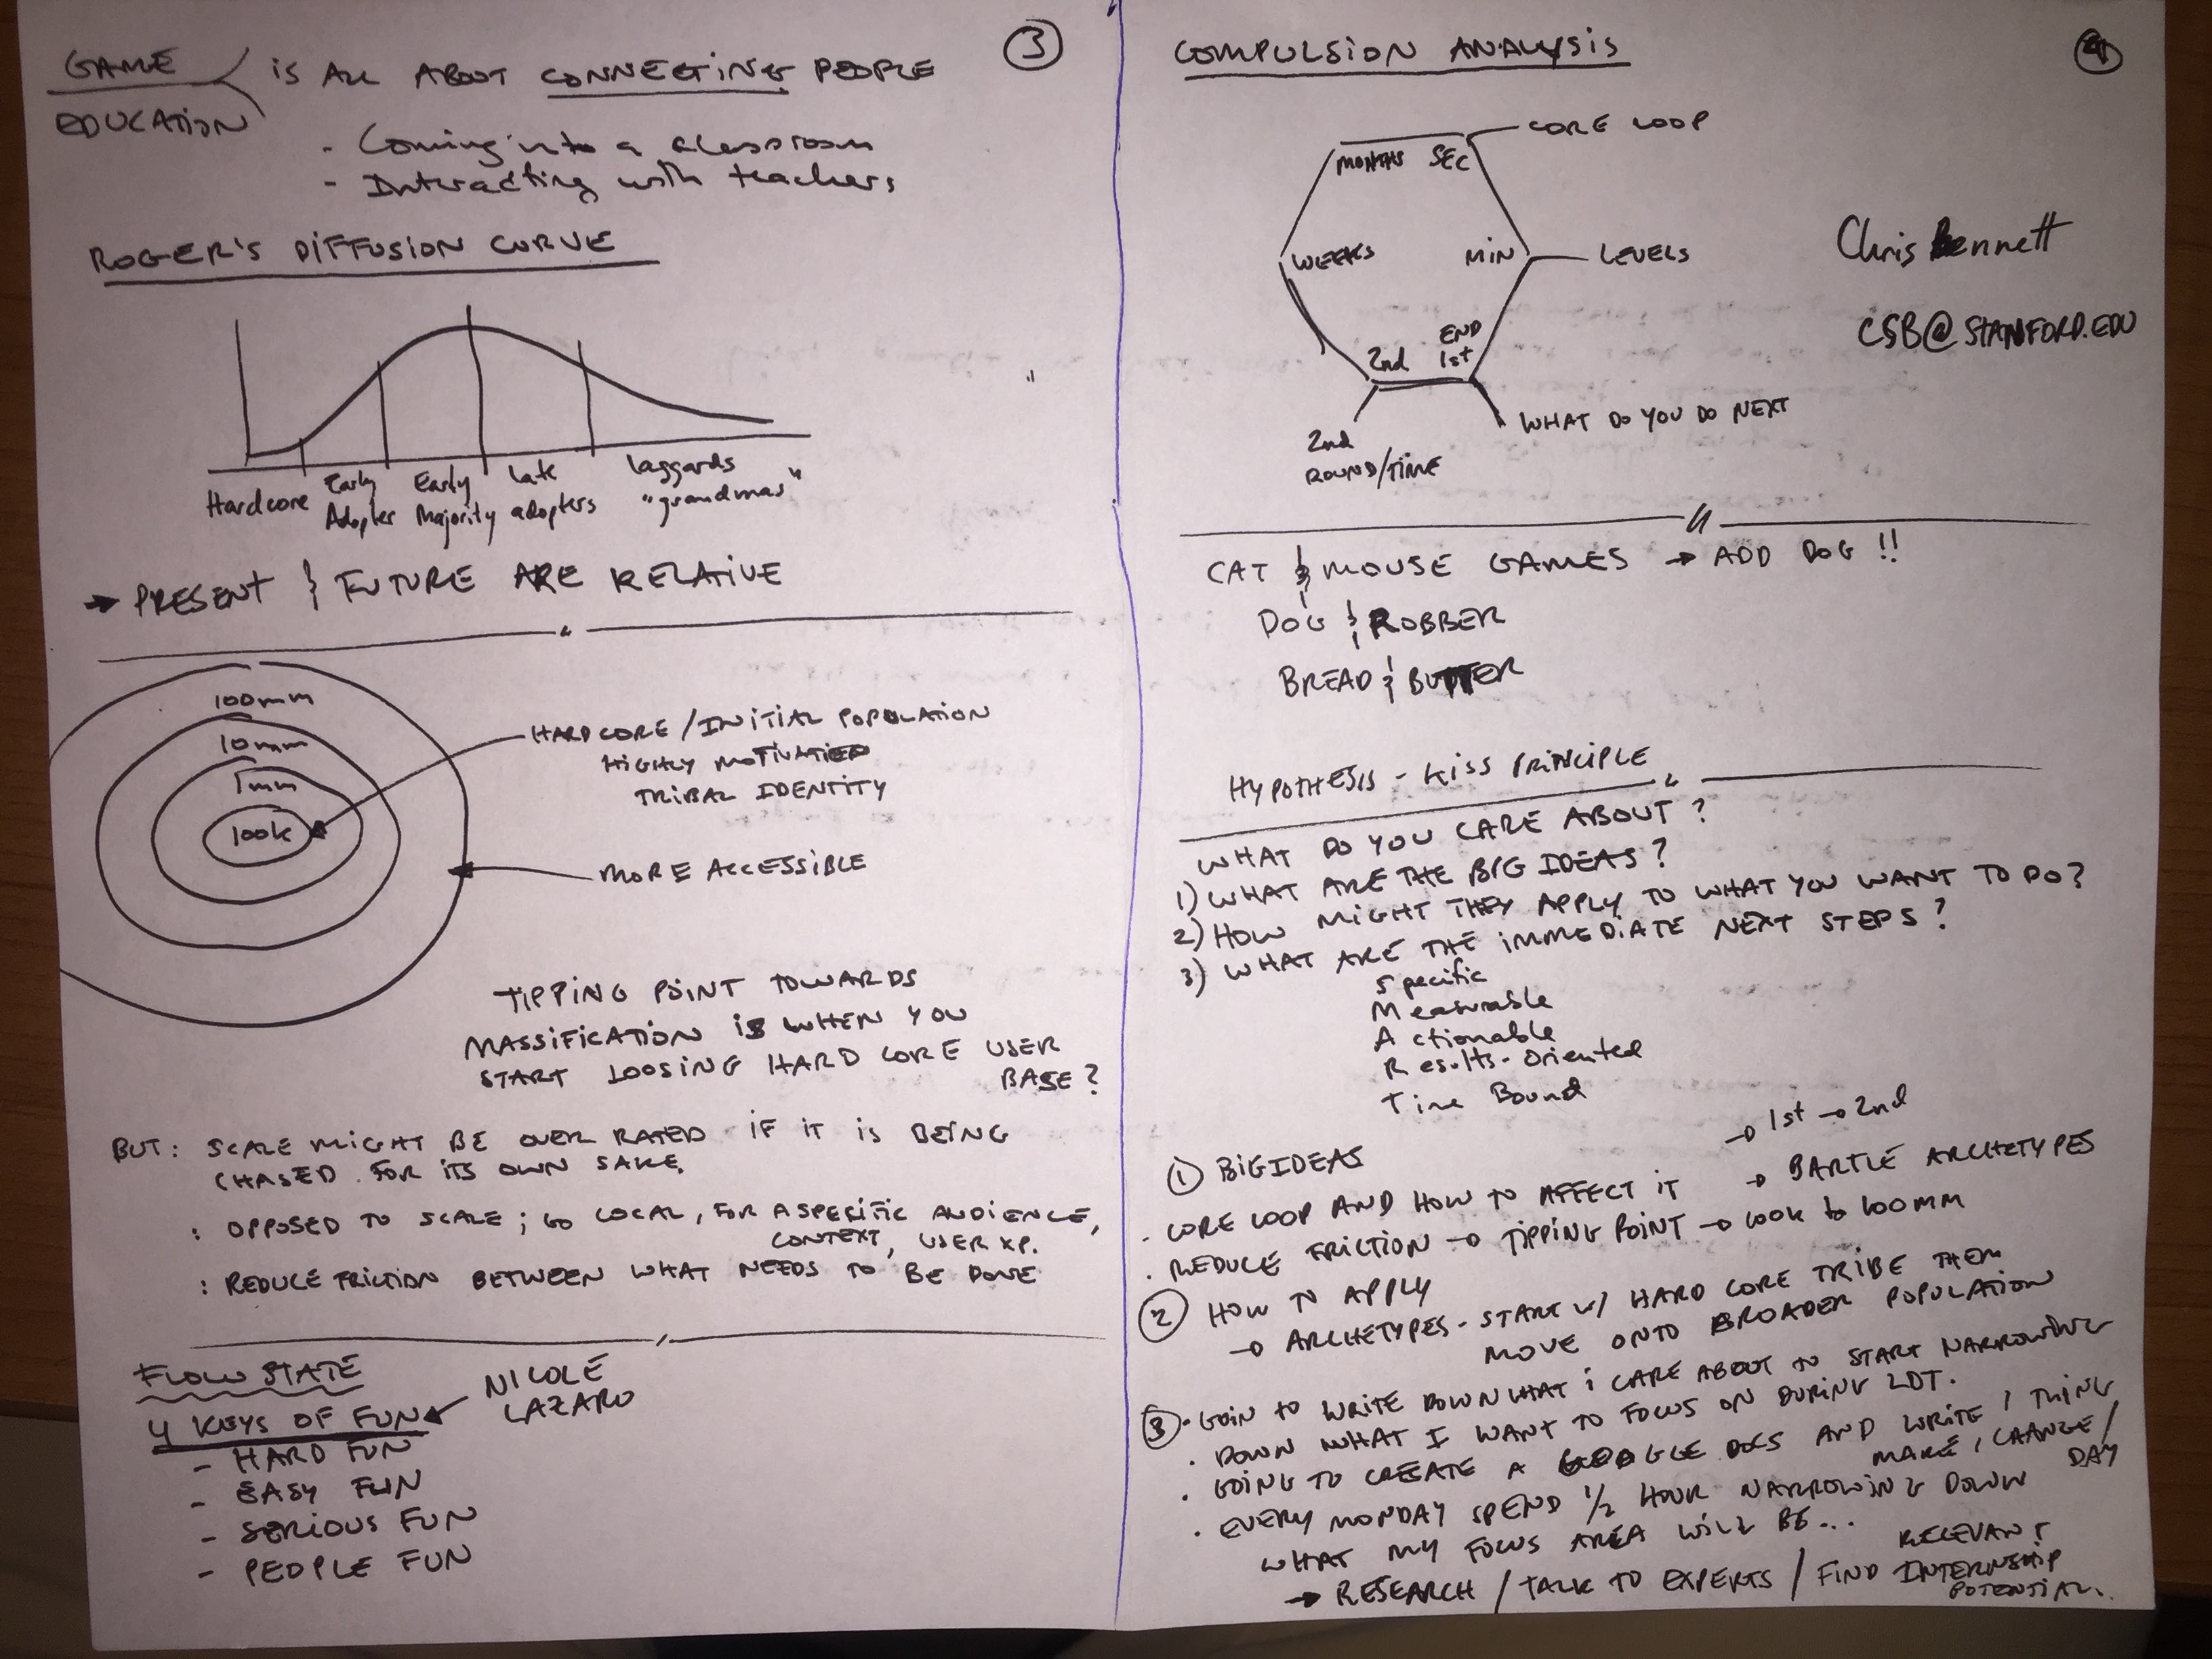 3
GAME
EDUCATION
is ALL ABOUT CONNECTING PEOPLE
- Coming into a classroom
- Interacting with teachers
ROGER'S DIFFUSION CURVE
Hardcore
Early
Adopter
Early
Majority
late
adopters
laggards
"grandmas"
→ PRESENT & FUTURE ARE RELATIVE
100mm
10mm
1mm
100k
HARDCORE/INITIAL POPULATION
HIGHLY MOTIVATED
TRIBAL IDENTITY
MORE ACCESSIBLE
TIPPING POINT TOWARDS
MASSIFICATION IS WHEN YOU
START LOOSING HARD CORE USER
BASE?
BUT: SCALE MIGHT BE OVER RATED IF IT IS BEING
CHASED FOR ITS OWN SAKE.
: OPPOSED TO SCALE; GO LOCAL, FOR A SPECIFIC AUDIENCE,
CONTEXT, USER XP.
: REDUCE FRICTION BETWEEN WHAT NEEDS TO BE DONE
FLOW STATE
4 KEYS OF FUN
NICOLE
LAZARO
- HARD FUN
- EASY FUN
- SERIOUS FUN
- PEOPLE FUN
4
COMPULSION ANALYSIS
CORE LOOP
MONTHS SEC
WEEKS MIN
LEVELS
END
2nd 1st
WHAT DO YOU DO NEXT
2nd
ROUND/TIME
Chris Bennett
CSB@STANFORD.EDU
CAT & MOUSE GAMES → ADD DOG !!
DOG & ROBBER
BREAD & BUTTER
HYPOTHESIS - KISS PRINCIPLE
WHAT DO YOU CARE ABOUT?
1) WHAT ARE THE BIG IDEAS?
2) HOW MIGHT THEY APPLY TO WHAT YOU WANT TO DO?
3) WHAT ARE THE IMMEDIATE NEXT STEPS?
Specific
Measurable
Actionable
Results-Oriented
Time Bound
1 BIG IDEAS
→ 1st → 2nd
· CORE LOOP AND HOW TO AFFECT IT → BARTLE ARCHETYPES
· REDUCE FRICTION → TIPPING POINT → 100K to 100MM
2 HOW TO APPLY
→ ARCHETYPES - START W/ HARD CORE TRIBE THEM
MOVE ONTO BROADER POPULATION
3 · GOIN TO WRITE DOWN WHAT i CARE ABOUT TO START NARROWING
· DOWN WHAT I WANT TO FOCUS ON DURING LDT.
· GOING TO CREATE A GOOGLE DOCS AND WRITE 1 THING
MAKE 1 CHANGE/
DAY
· EVERY MONDAY SPEND 1/2 HOUR NARROWING DOWN
WHAT MY FOCUS AREA WILL BE...
→ RESEARCH / TALK TO EXPERTS / FIND RELEVANT INTERNSHIP
POTENTIAL.